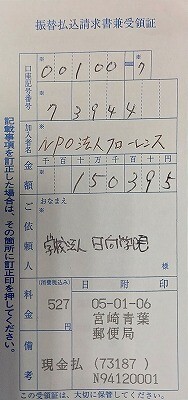 振替払込請求書兼受領証
口座記号番号
※
00100=7
※
73944
加入者名
※
NPO法人フローレンス
金額
千 百 十 万 千 百 十 円
※
150395
ご依頼人
おなまえ
※
学校法人 日向学院
様
料金
(消費税込み)
527
円
日附印
05-01-06
宮崎青葉
郵便局
備考
現金払 (73187)
N94120001
記載事項を訂正した場合は、その箇所に訂正印を押してください。
この受領証は、大切に保管してください。